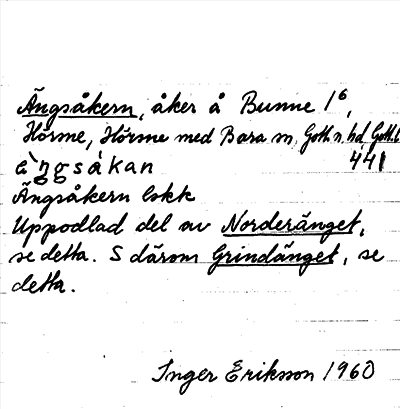 Ängsåkern, åker å Bunne 1⁶,
Hörsne, Hörsne med Bara sn, Gotl. n. hd, Gotl. l
ängsåkan 441
Ängsåkern lokk
Uppodlad del av Norderänget,
se detta. S därom Grindänget, se
detta.
Inger Eriksson 1960